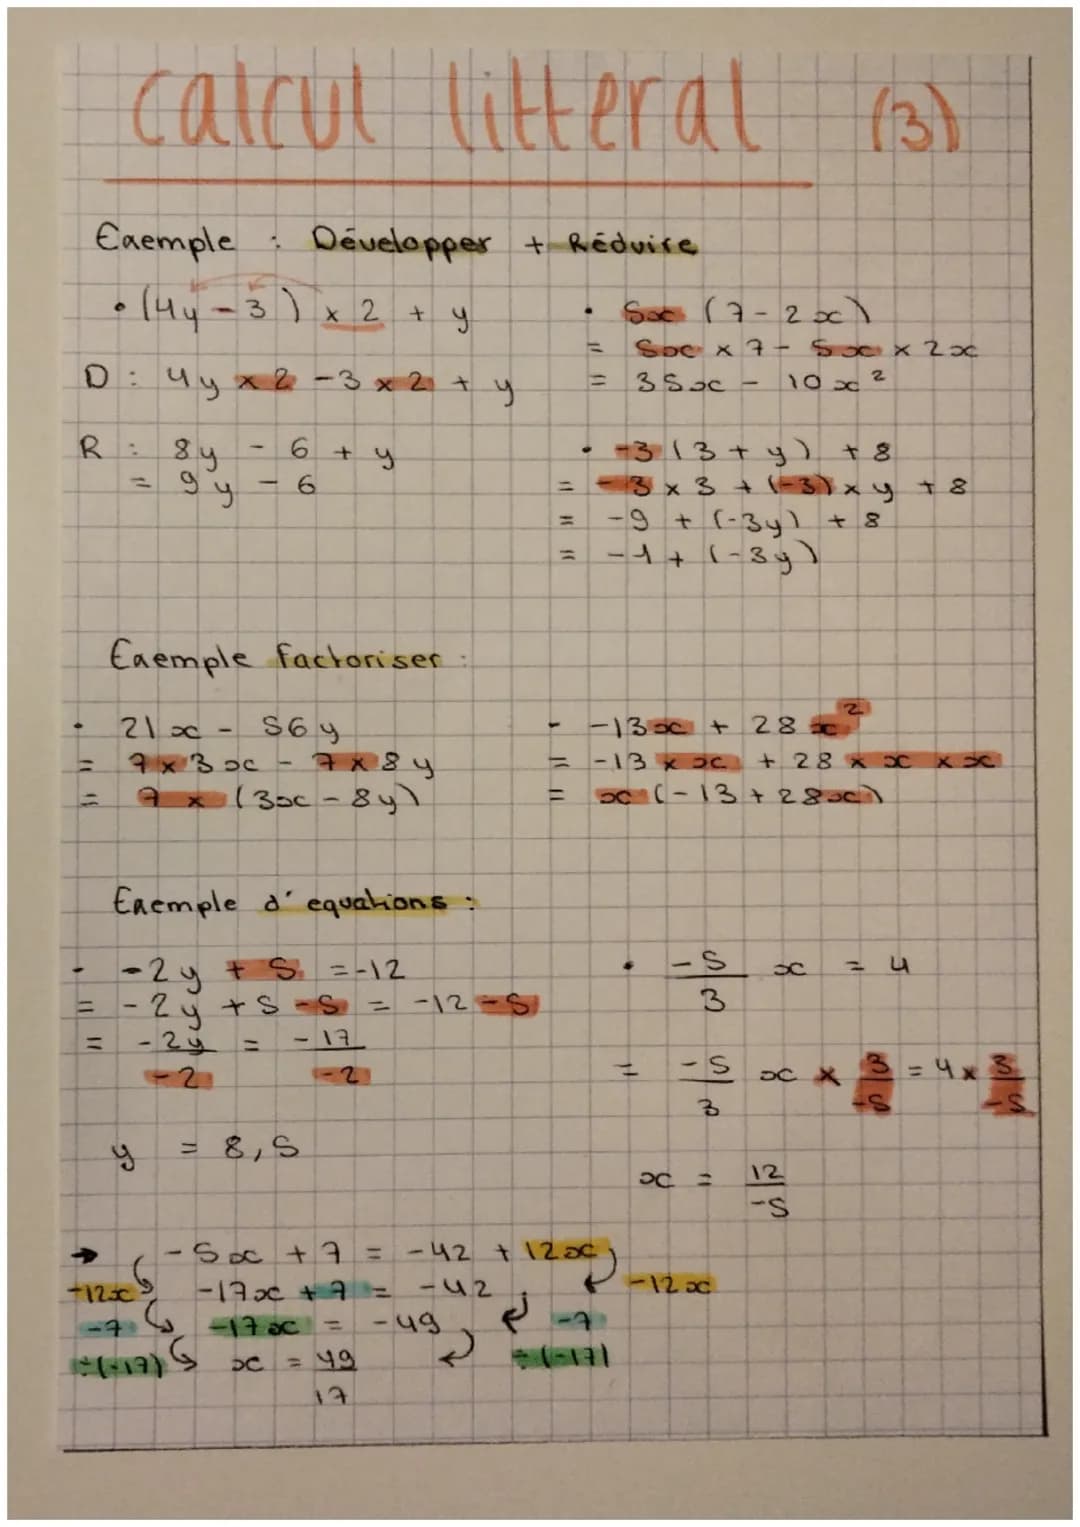 calcul litteral (3)
Exemple : Développer + Réduire
• (4y - 3) x 2 + y
D : 4y x 2 - 3 x 2 + y
R : 8y - 6 + y
= 9y - 6
• 5x (7 - 2x)
= 5x x 7 - 5x x 2x
= 35x - 10x²
• -3 (3 + y) + 8
= -3 x 3 + (-3) x y + 8
= -9 + (-3y) + 8
= -1 + (-3y)
Exemple factoriser :
• 21x - 56y
= 7 x 3x - 7 x 8y
= 7 x (3x - 8y)
- -13x + 28x²
= -13 x x + 28 x x x x
= x (-13 + 28x)
Exemple d'equations :
- -2y + 5 = -12
= -2y + 5 - 5 = -12 - 5
= -2y/-2 = -17/-2
y = 8,5
• -5/3 x = 4
= -5/3 x x 3/-5 = 4 x 3/-5
x = 12/-5
→ -5x + 7 = -42 + 12x
-12x -17x + 7 = -42 -12x
-7 -17x = -49 -7
÷(-17) x = 49/17 ÷(-17)